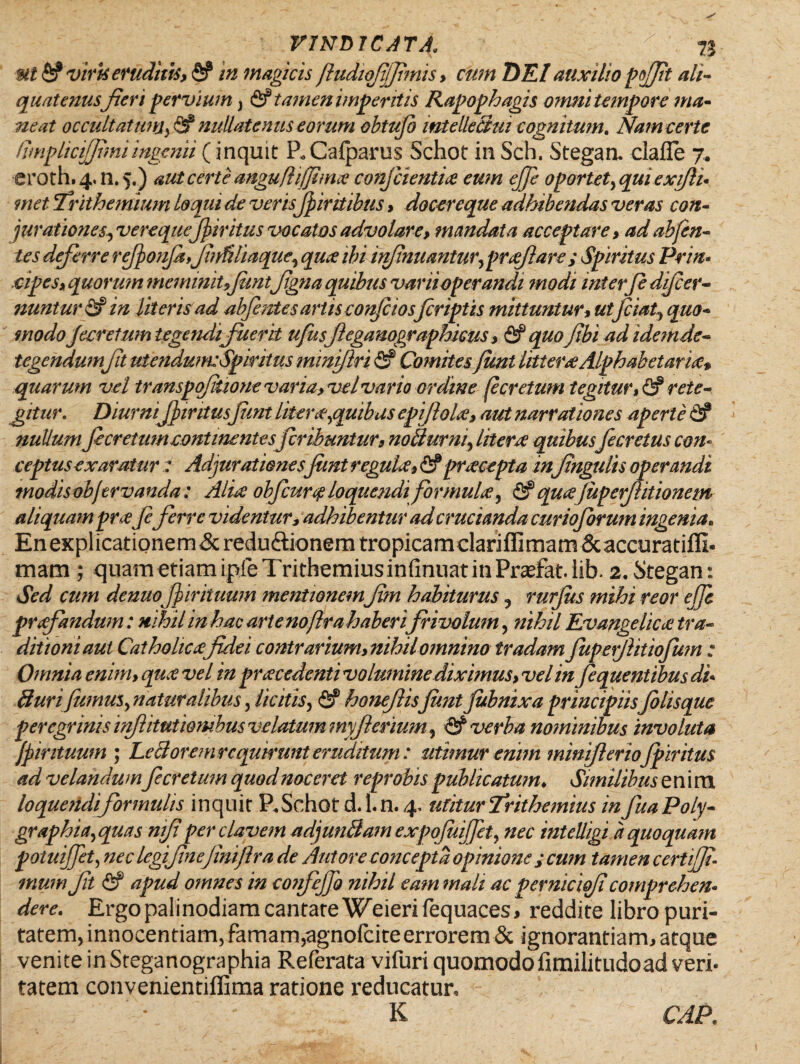 VINDICATA. 73
ut & viris eruditis, & in magicis ſtudioſiſſimis, cum DEI auxilio poſſit ali-
quatenus fieri pervium, & tamen imperitis Rapophagis omni tempore ma-
neat occultatum, & nullatenus eorum obtuſo intellectui cognitum. Nam certe
ſimpliciſſimi ingenii (inquit P. Caſparus Schot in Sch. Stegan. claſſe 7.
eroth. 4. n. 5.) aut certè anguſtiſſimæ conſcientiæ eum eſſe oportet, qui exiſti-
met Trithemium loqui de veris ſpiritibus, docereque adhibendas veras con-
jurationes, verequeſpiritus vocatos advolare, mandata acceptare, ad abſen-
tes deferre reſponſa, ſimiliaque, quæ ibi inſinuantur, præſtare; Spiritus Prin-
cipes, quorum meminit, ſunt ſigna quibus varii operandi modi inter ſe diſcer-
nuntur & in literis ad abſentes artis conſcios ſcriptis mittuntur, ut ſciat, quo-
modo ſecretum tegendi fuerit uſus ſteganographicus, & quo ſibi ad idem de-
tegendum ſit utendum: Spiritus miniſtri & Comites ſunt litteræ Alphabetariæ,
quarum vel transpoſitione varia, vel vario ordine ſecretum tegitur, & rete-
gitur. Diurni ſpiritus ſunt literæ, quibus epiſtolæ, aut narrationes apertè &
nullum ſecretum continentes ſcribuntur, nocturni, literæ quibus ſecretus con-
ceptus exaratur: Adjurationes ſunt regulæ, & præcepta in ſingulis operandi
modis obſervanda: Aliæ obſcuræ loquendi formulæ, & quæ ſuperſtitionem
aliquam præ ſe ferre videntur, adhibentur ad crucianda curioſorum ingenia.
En explicationem & reductionem tropicam clariſſimam & accuratiſſi-
mam; quam etiam ipſe Trithemius inſinuat in Præfat. lib. 2. Stegan:
Sed cum denuo ſpirituum mentionem ſim habiturus, rurſus mihi reor eſſe
præfandum: nihil in hac arte noſtra haberi frivolum, nihil Evangelicæ tra-
ditioni aut Catholicæ fidei contrarium, nihil omnino tradam ſuperſtitioſum:
Omnia enim, quæ vel in præcedenti volumine diximus, vel in ſequentibus di-
cturi ſumus, naturalibus, licitis, & honeſtis ſunt ſubnixa principiis ſolisque
peregrinis inſtitutionibus velatum myſterium, & verba nominibus involuta
ſpirituum; Lectorem requirunt eruditum: utimur enim miniſterio ſpiritus
ad velandum ſecretum quod noceret reprobis publicatum. Similibus enim
loquendi formulis inquit P. Schot d. l. n. 4. utitur Trithemius in ſua Poly-
graphia, quas niſi per clavem adjunctam expoſuiſſet, nec intelligi à quoquam
potuiſſet, nec legi ſine ſiniſtra de Autore concepta opinione; cum tamen certiſſi-
mum ſit & apud omnes in confeſſo nihil eam mali ac pernicioſi comprehen-
dere. Ergo palinodiam cantate Weieri ſequaces, reddite libro puri-
tatem, innocentiam, famam, agnoſcite errorem & ignorantiam, atque
venite in Steganographia Reſerata viſuri quomodo ſimilitudo ad veri-
tatem convenientiſſima ratione reducatur.
K CAP.